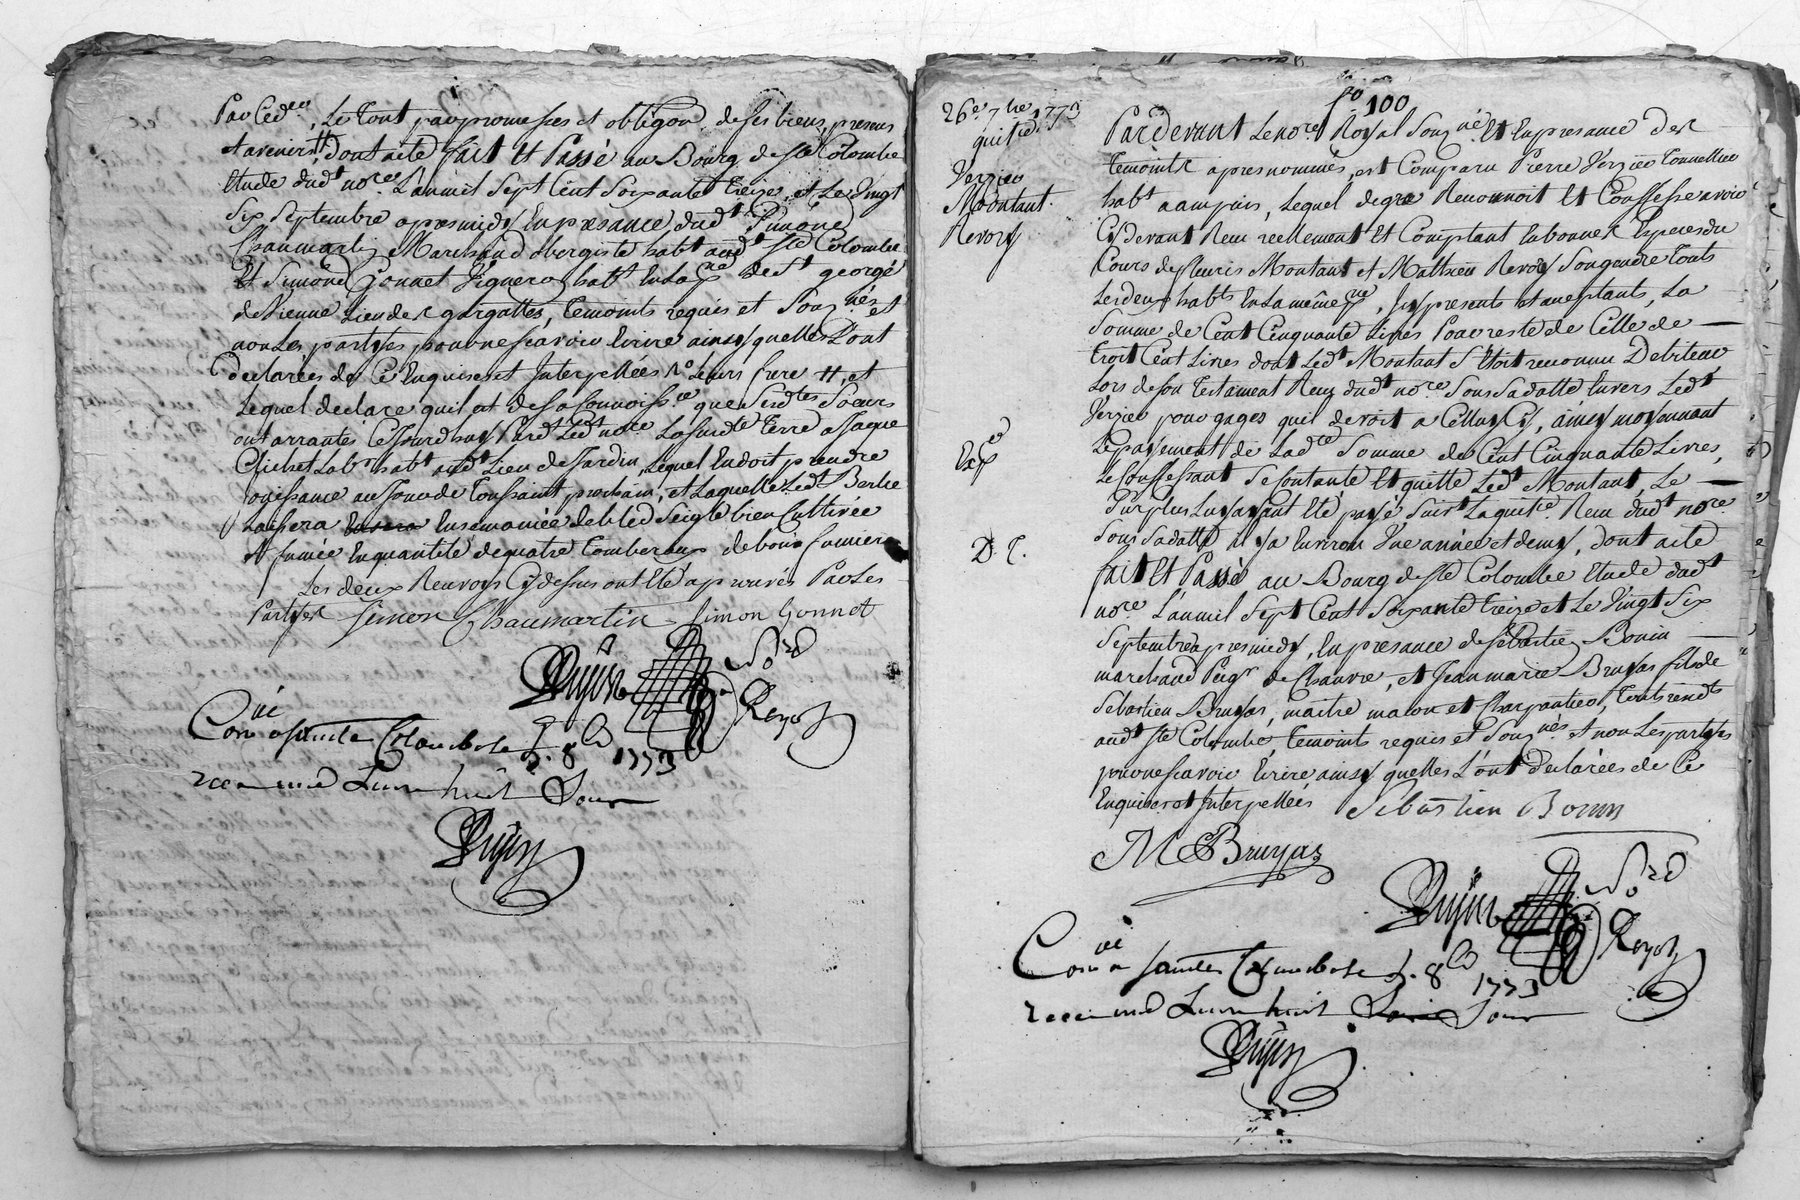 Par Ced.es, Le Tout par promesses et obligaôn de ses biens, presens
et avenirs # dont acte fait Et Passé au Bourg de Ste Colombe
Etude dud.t no.re L'an mil Sept Cent Soixante Treize, et Le Vingt
Six Septembre apres midy En presance dud.t Simône
Chaumartin Marchand obergiste hab.t aud.t Ste Colombe
Et Simond Gonnet Vigneron hab.t En la p.sse de St george
de Vienne Lieu des gargattes, Temoins requis et Souz.nés et
non Les parties pour ne scavoir Ecrire ainsy quelles L'ont
declarées de Ce Enquises et Interpellées # Leurs frere #, et
Lequel declare quil est de sa Connoiss.ce que Sesd.tes Soeurs
ont arrantés Cejourdhuy Pard.t Led.t no.re La susd.te Terre a Jaque
Clichet Lab.r hab.t aud.t Lieu de Jardin, Lequel En doit prendre
jouissance au Jour de Toussaint prochain, et Laquelle Led.t Berlie
Laissera Ensemancée de bled Seigle bien Cultivée
et fumée En quantité de quatre Tomberaux de bois fumier
Les deux Renvoys Cy dessus ont Eté aprouvés Par Les
Parties Simon Chaumartin Simon Gonnet
No.re Rd
Royal
Con.lé a sainte Colombe le 3. 8.bre 1773
recu une Livre huit Sous
f.o 100
26.e 7.bre 1773
quit.ce
Verzier
Montant
Revoy
Exp.é
D. T.
Pardevant Le no.re Royal Souz.né Et En presance des
Temoins apres nommés, est Comparu Pierre Verzier Tonnellier
hab.t a ampuis, Lequel de gré Reconnoit Et Confesse avoir
Cy devant Recu reellement Et Comptant En bonnes Especes du
Cours de fleuris Montant et Mathieu Revoy Son gendre Touts
Les deux hab.ts En La même p.sse, Icy presents et aceptants, La
Somme de Cent Cinquante Livres Pour reste de Celle de
Trois Cent Livres dont Led.t Montant S'Etoit reconnu Debiteur
Lors de son Testament Recu dud.t no.re Sous Sa datte Envers Led.t
Verzier pour gages quil devoit a Celluy Cy, ainsy moyennant
Le payement de Lad.te Somme de Cent Cinquante Livres,
Le Confessant Se contante Et quitte Led.t Montant, Le
Surplus Luy ayant Eté payé Suivt La quit.ce Recu dud.t no.re
Sous Sa datte il y a Environ Une année et demy, dont acte
fait Et Passé au Bourg de Ste Colombe Etude dud.t
no.re L'an mil Sept Cent Soixante Treize et Le Vingt Six
Septembre apres midy, En presance de Sébastien Bonin
marchand Peig.r de Chanvre, et Jean marie Bruyas fils de
Sébastien Bruyas, maitre macon et Charpantier, Touts resid.ts
aud.t Ste Colombe, Temoins requis et Souz.nés et non Les parties
pour ne scavoir Ecrire ainsy quelles L'ont declarées de Ce
Enquises et Interpellées Sébastien Bonin
J M Bruyas
No.re Rd
Royal
Con.lé a sainte Colombe le 3. 8.bre 1773
recu une Livre huit Sous